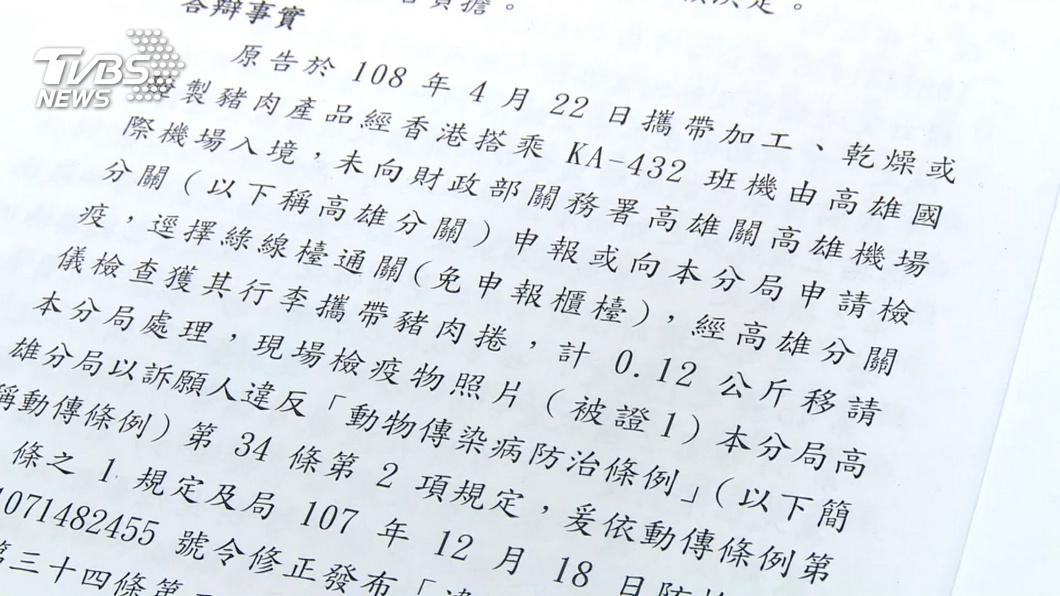 負擔。
決定。
答辯事實
TVBS
NEWS
原告於 108 年 4 月 22 日攜帶加工、乾燥或
製豬肉產品經香港搭乘 KA-432 班機由高雄國
際機場入境，未向財政部關務署高雄關高雄機場
分關（以下稱高雄分關）申報或向本分局申請檢
疫，逕擇綠線檯通關(免申報櫃檯)，經高雄分關
儀檢查獲其行李攜帶豬肉捲，計 0.12 公斤移請
本分局處理，現場檢疫物照片（被證1）本分局高
雄分局以訴願人違反「動物傳染病防治條例」（以下簡
稱動傳條例）第 34 條第 2 項規定，爰依動傳條例第
條之 1 規定及局 107 年 12 月 18 日防檢
1071482455 號令修正發布「違
第三十四條第